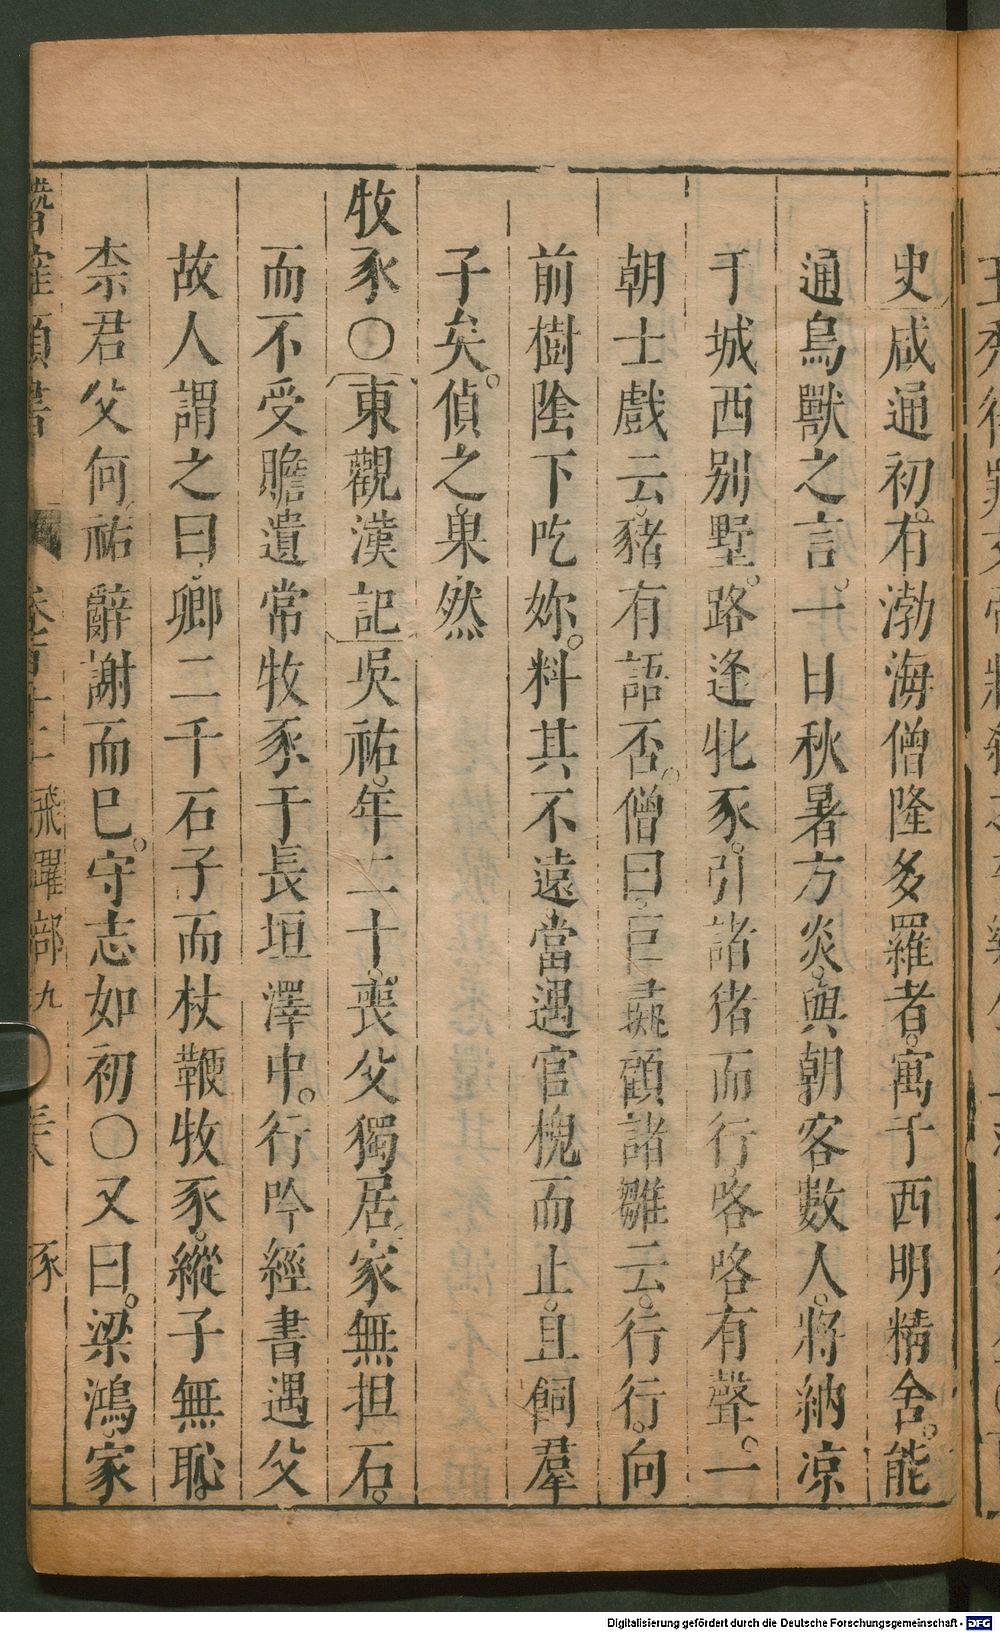 史咸通初。有渤海僧隆多羅者。寓于西明精舍。能
通鳥獸之言。一日秋暑方炎。與朝客數人。將納凉
于城西别墅。路逢牝豕。引諸猪而行。咯咯有聲。一
朝士戲云。豬有語否。僧曰。巨彘顧諸雛云。行行。向
前樹陰下吃妳。料其不遠當遇官槐而止。且飼羣
子矣。偵之。果然
牧豕〇東觀漢記吳祐。年二十。喪父獨居。家無担石。
而不受贍遺常牧豕于長垣澤中。行吟經書遇父
故人謂之曰。卿二千石子而杖鞭牧豕。縱子無恥。
柰君父何。祐辭謝而已。守志如初〇又曰。梁鴻。家
潛確類書 卷百十二 飛躍部九 豕
Digitalisierung gefördert durch die Deutsche Forschungsgemeinschaft - DFG